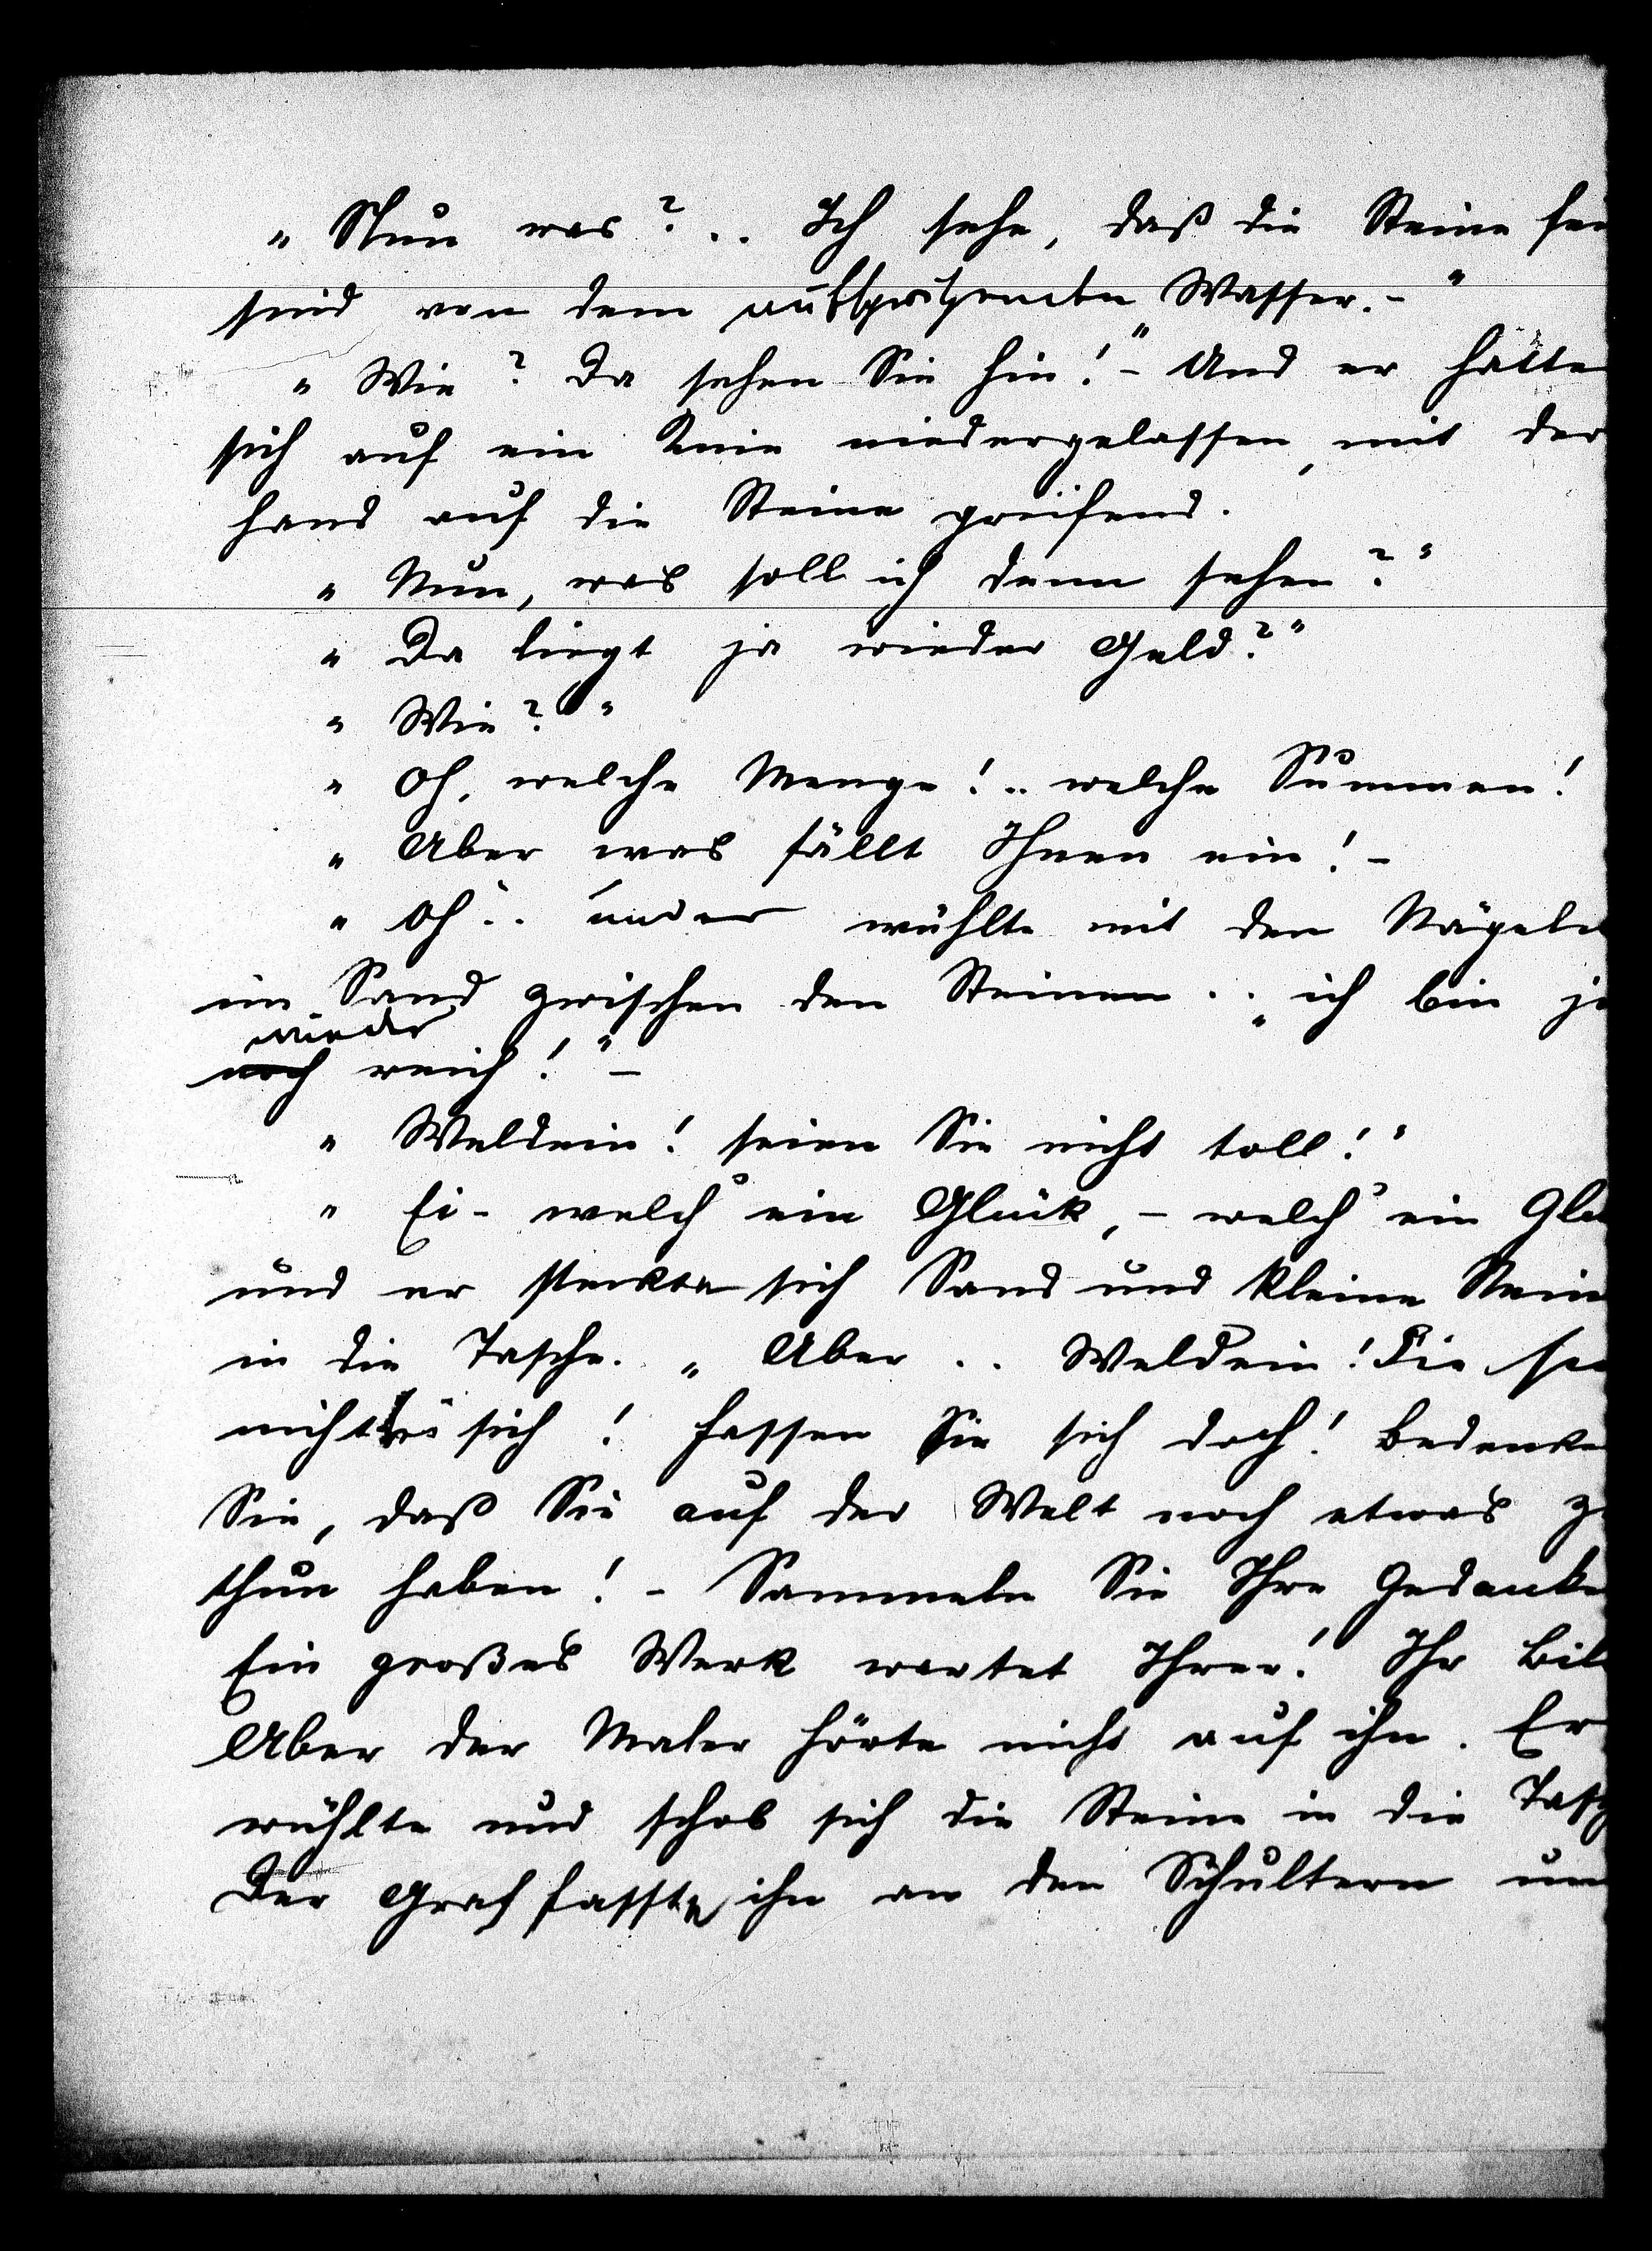 „ Nun was? .. Ich sehe, daß die Steine feu
sind von dem aufspritzenden Wasser. – “
„ Wie? Da sehen Sie hin! “ – Und er hatte
sich auf ein Knie niedergelassen, mit der
Hand auf die Steine greifend.
„ Nun, was soll ich denn sehen? “
„ Da liegt ja wieder Geld? “
„ Wie? “
„ Oh, welche Menge! .. welche Summen!
„ Aber was fällt Ihnen ein! –
„ Oh “ .. und er wühlte mit den Nägeln
im Sand zwischen den Steinen .. „ ich bin ja
wieder
noch reich! “ –
„ Weldein! seien Sie nicht toll! “
„ Ei – welch' ein Glück, – welch' ein Glü
und er steckte sich Sand und kleine Steine
in die Tasche. „ Aber .. Weldein! Sie sin
nicht bei sich! Fassen Sie sich doch! Bedenken
Sie, daß Sie auf der Welt noch etwas zu
thun haben! – Sammeln Sie Ihre Gedanken
Ein großes Werk wartet Ihrer! Ihr Bil
Aber der Maler hörte nicht auf ihn. Er
wühlte und schob sich die Steine in die Tasch
Der Graf fasste ihn an den Schultern und